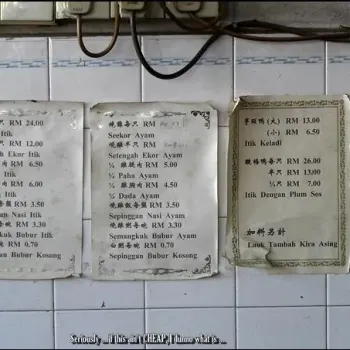 尺 RM 24.00
Itik
尺 RM 12.00
h Ekur Itik
肉 RM 6.50
Itik
肉 RM 6.00
Itik
每盤 RM 3.50
an Nasi Itik
每碗 RM 3.30
kuk Bubur Itik
碗 RM 0.70
an Bubur Kosong
燒雞每隻 RM
Seekor Ayam
燒雞半隻 RM
Setengah Ekor Ayam
¼ 雞腿肉 RM 5.00
¼ Paha Ayam
¼ 雞胸肉 RM 4.50
¼ Dada Ayam
燒雞飯每盤 RM 3.50
Sepinggan Nasi Ayam
燒雞粥每碗 RM 3.30
Semangkuk Bubur Ayam
白粥每碗 RM 0.70
Sepinggan Bubur Kosong
芋頭鴨 (大) RM 13.00
(小) RM 6.50
Itik Keladi
酸梅鴨每隻 RM 26.00
半隻 RM 13.00
¼隻 RM 7.00
Itik Dengan Plum Sos
加料另計
Lauk Tambah Kira Asing
Seriously ... if this ain't CHEAP, I dunno what is ...